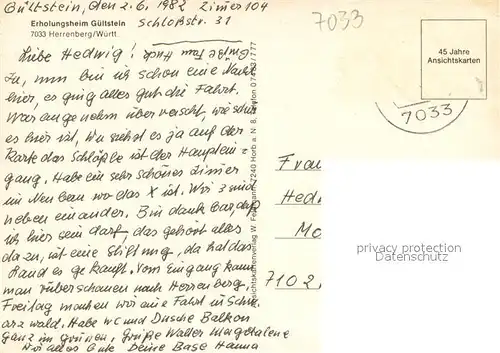 Gültstein, den 2.6.1982 Zimer 104
Erholungsheim Gültstein
Schloßstr. 31
7033 Herrenberg/Württ.
7033
45 Jahre
Ansichtskarten
7033
Liebe Hedwig!
Ja, nun bin ich schon eine
hier, es ging alles gut die Fahrt.
War angenehm überrascht, wie schön
es hier ist, Du siehst es ja auf der
Karte das Schlößle ist der Hauptein=
gang. Habe ein sehr schönes Zimer
im Neubau wo das X ist. Wir 3 sind
neben einander. Bin dankbar, daß
ich hier sein darf, das gehört alles
dazu, ist eine Stiftung, da hat das
Land es gekauft. Vom Eingang kann
man rüberschauen nach Herrenberg,
Freitag machen wir eine Fahrt in Schw=
arzwald. Habe WC und Dusche Balkon
ganz im grünen, Grüße Walter Magdalene
wir alles Gute Deine Base Hanna
Ansichtskartenverlag W. 7240 Horb a. N. 8, Telefon 07451/777
Frau
Hed
Mo
7102
privacy protection
Datenschutz